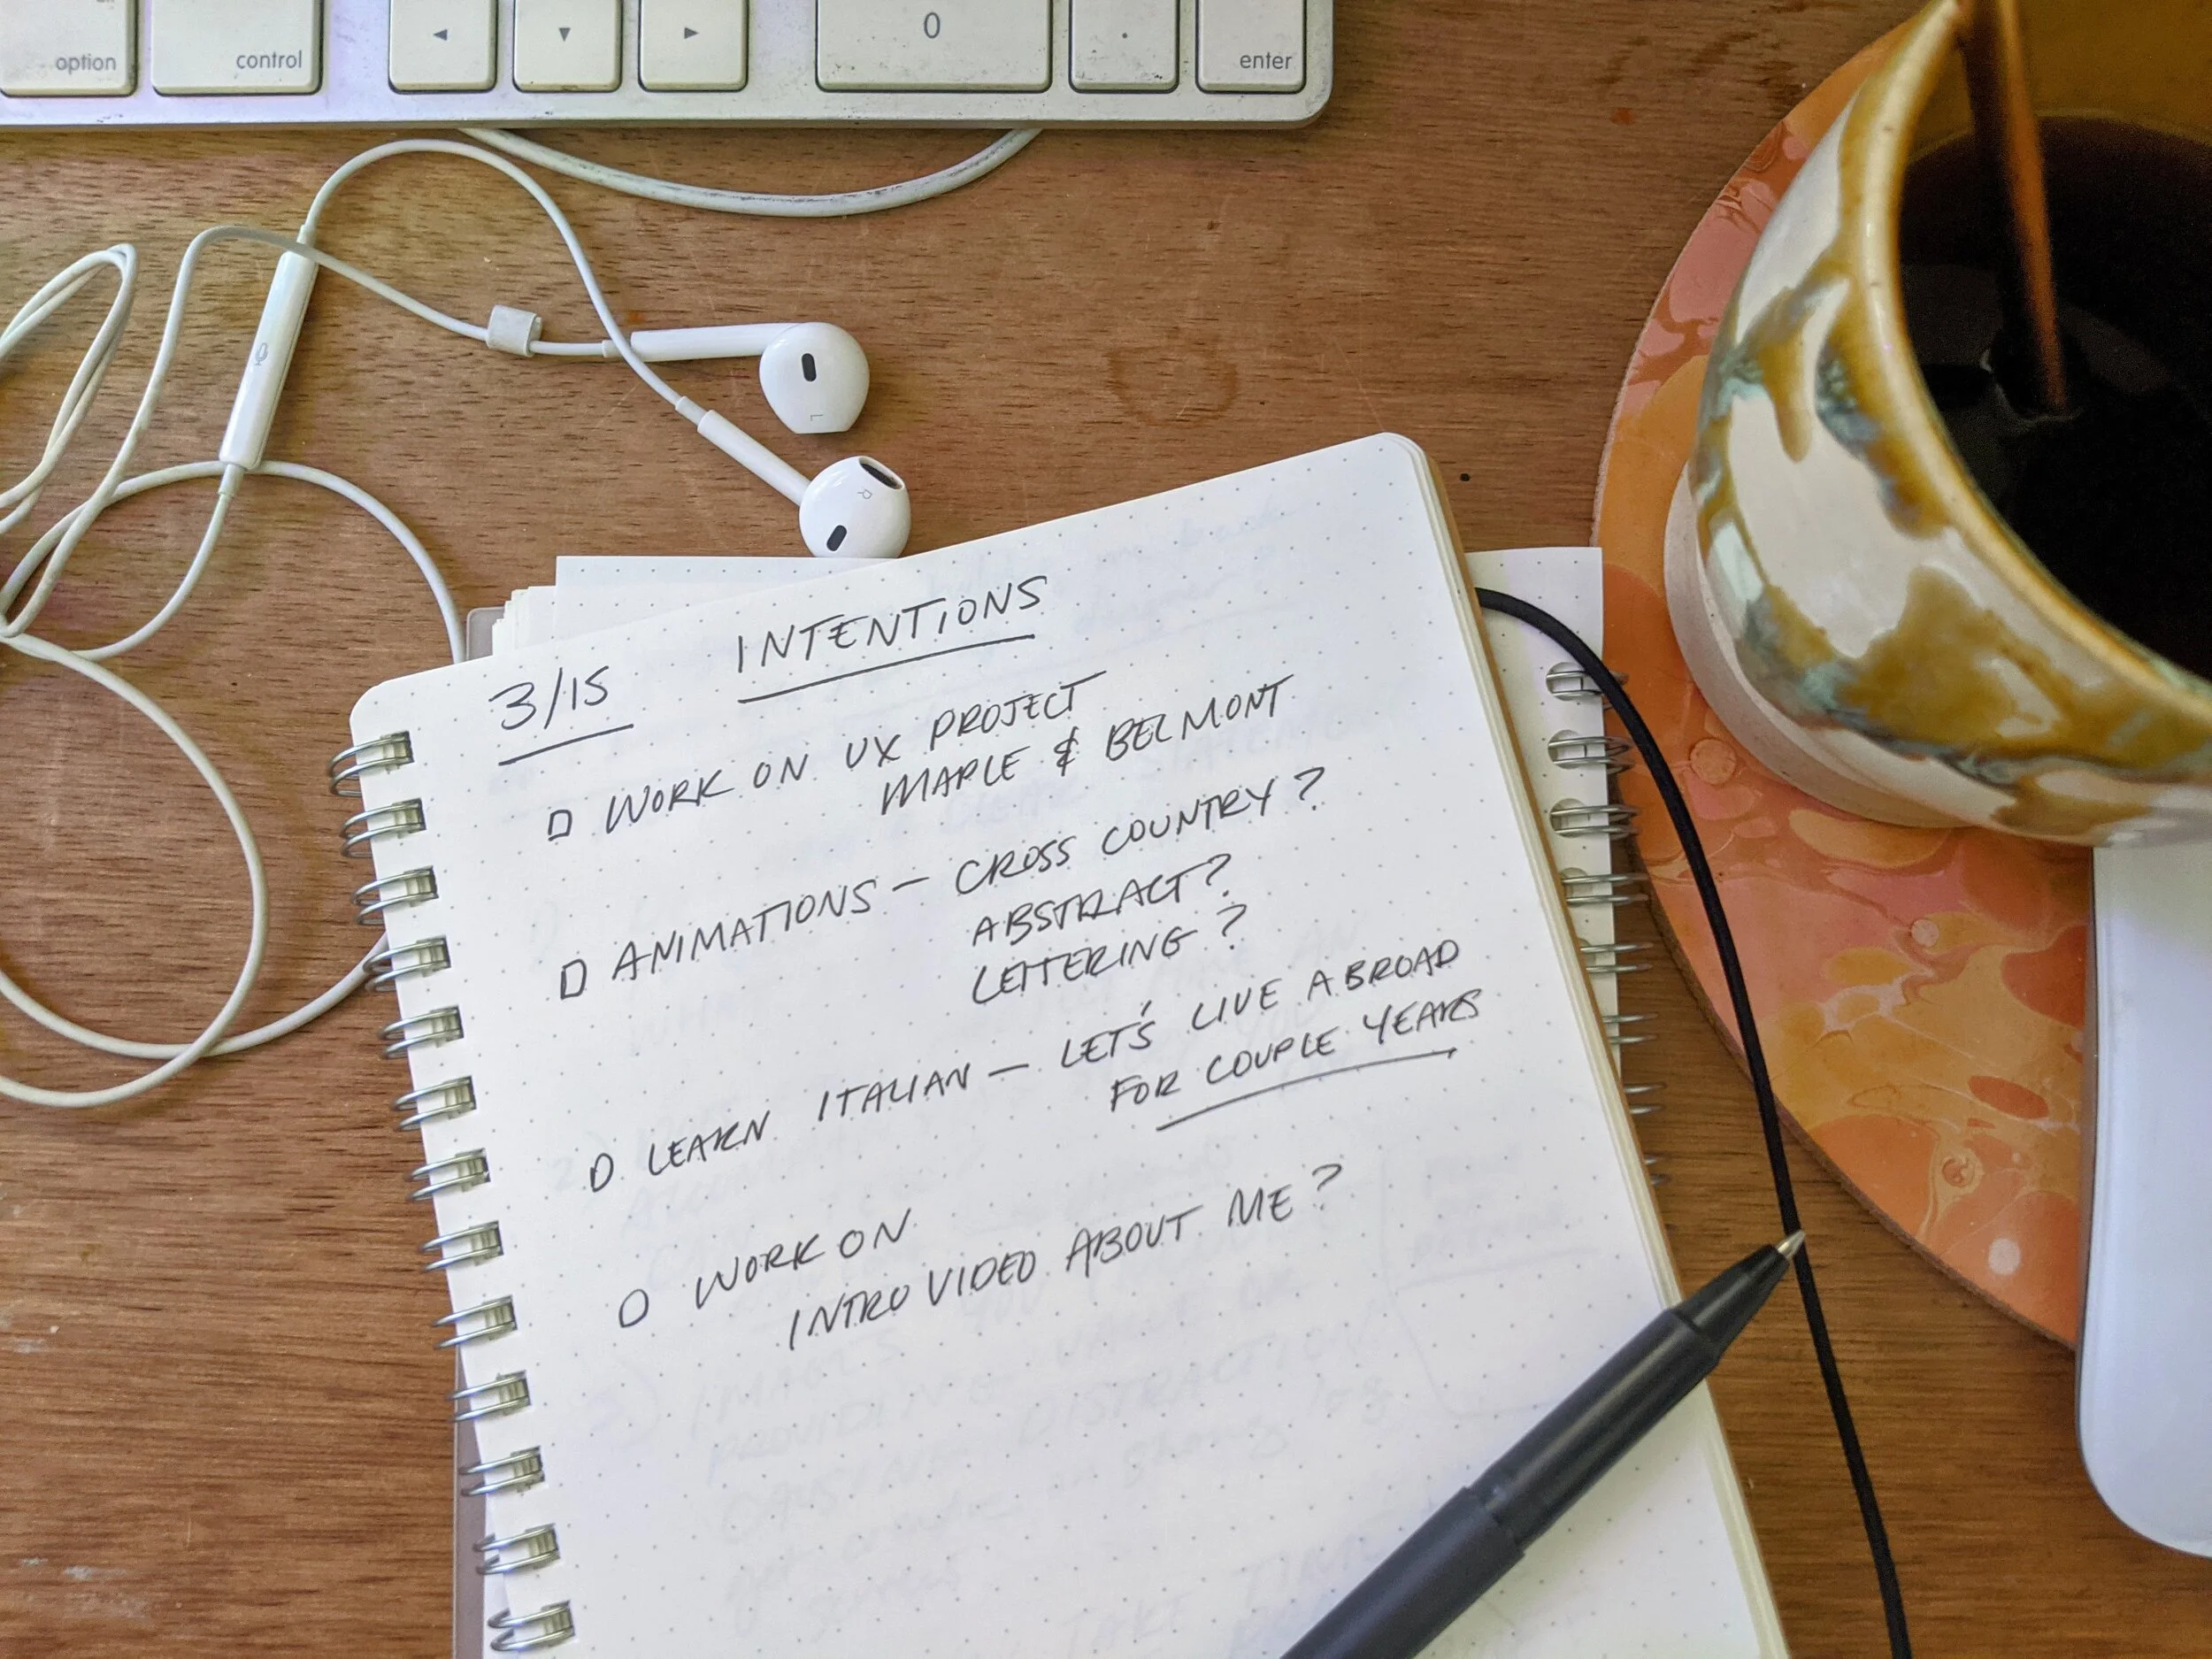 option
control
◄
▼
►
0
.
enter
L
R
INTENTIONS
3/15
WORK ON UX PROJECT
MAPLE & BELMONT
ANIMATIONS — CROSS COUNTRY?
ABSTRACT?
LETTERING?
LEARN ITALIAN — LET'S LIVE ABROAD
FOR COUPLE YEARS
WORK ON
INTRO VIDEO ABOUT ME?